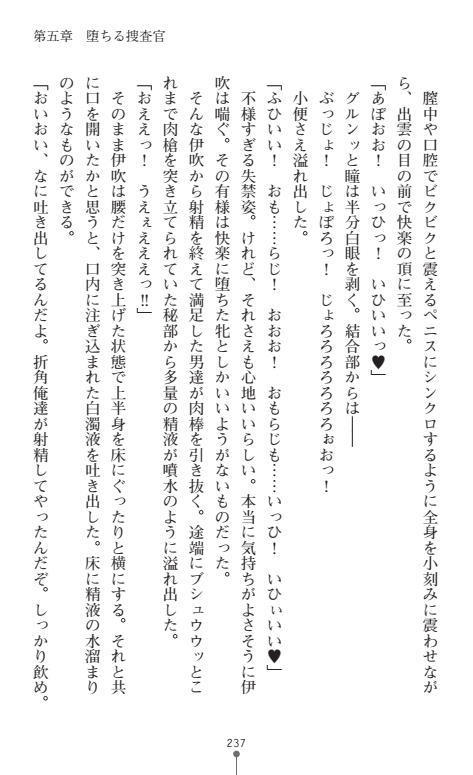 第五章　堕ちる捜査官
　膣中や口腔でビクビクと震えるペニスにシンクロするように全身を小刻みに震わせなが
ら、出雲の目の前で快楽の頂に至った。
「あぽぉお！　いっひっ！　いひいいっ♥」
　グルンッと瞳は半分白眼を剥く。結合部からは――
　ぶっじょ！　じょぼろっ！　じょろろろろろろろぉおっ！
　小便さえ溢れ出した。
「ふひいい！　おも……らじ！　おおお！　おもらじも……いっひ！　いひぃいい♥」
　不様すぎる失禁姿。けれど、それさえも心地いいらしい。本当に気持ちがよさそうに伊
吹は喘ぐ。その有様は快楽に堕ちた牝としかいいようがないものだった。
　そんな伊吹から射精を終えて満足した男達が肉棒を引き抜く。途端にブシュウウッとこ
れまで肉槍を突き立てられていた秘部から多量の精液が噴水のように溢れ出した。
「おええっ！　うえぇえええっ!!」
　そのまま伊吹は腰だけを突き上げた状態で上半身を床にぐったりと横にする。それと共
に口を開いたかと思うと、口内に注ぎ込まれた白濁液を吐き出した。床に精液の水溜まり
のようなものができる。
「おいおい、なに吐き出してるんだよ。折角俺達が射精してやったんだぞ。しっかり飲め。
237